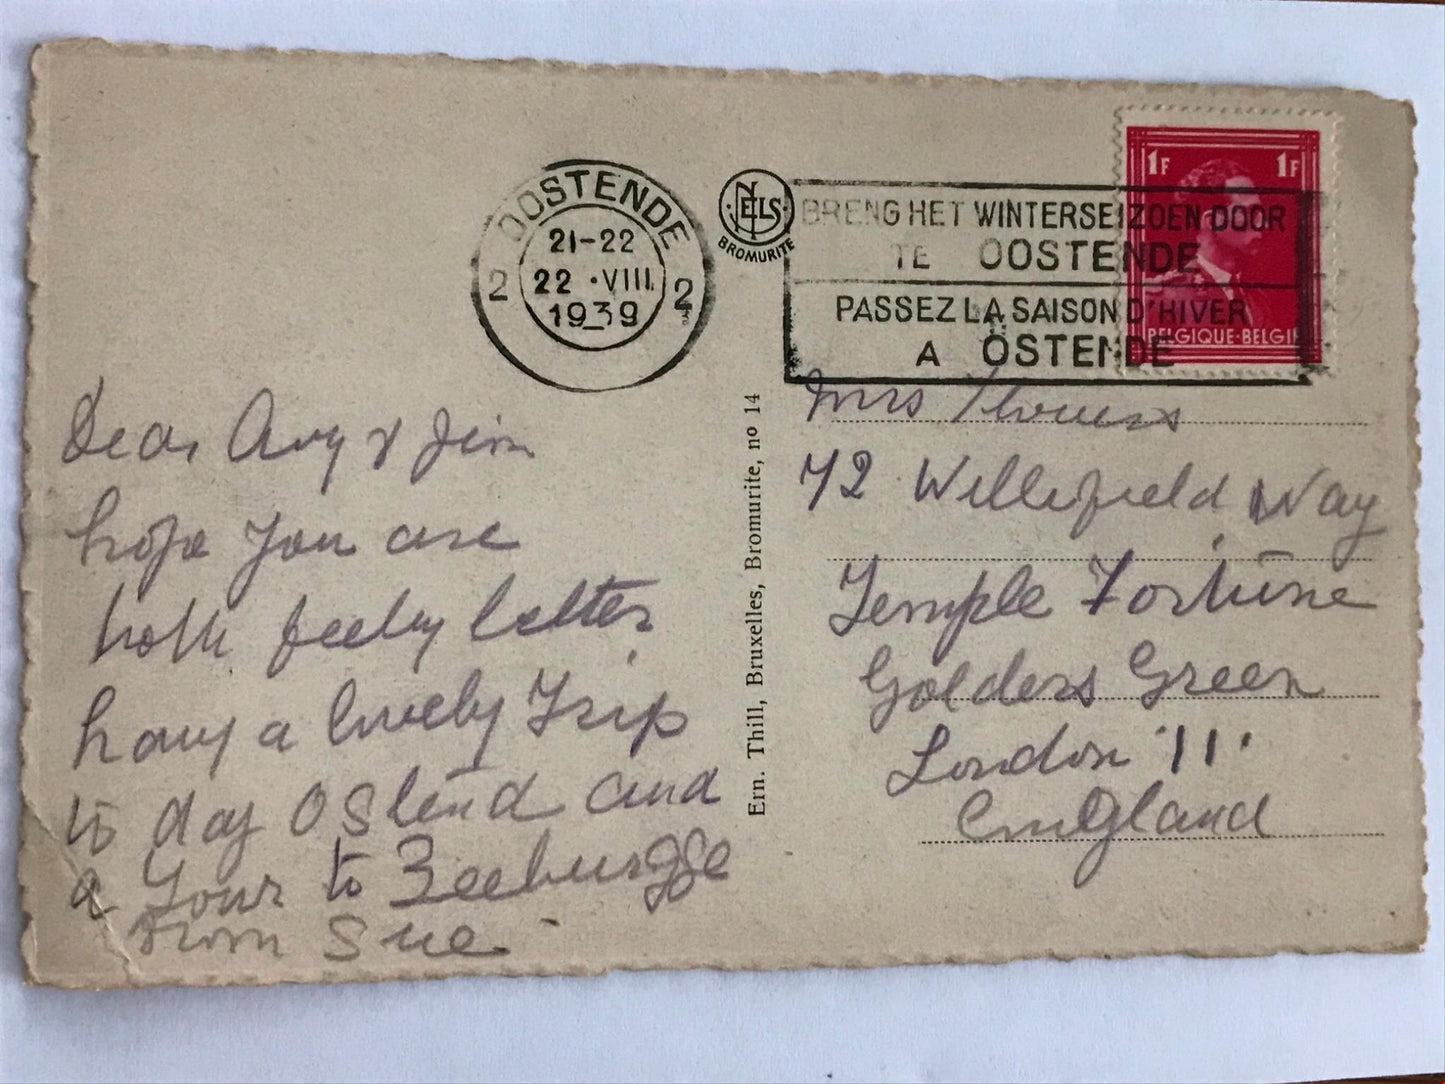 OOSTENDE
21-22
2 22 ·VIII. 2
1939
NELS
BROMURITE
BRENG HET WINTERSEIZOEN DOOR
TE OOSTENDE
PASSEZ LA SAISON D'HIVER
A OSTENDE
1F 1F
BELGIQUE-BELGIE
Dear & Jim
hope you are
both feeling better
having a lovely Trip
to day OStend and
a Tour to Zeebrugge
from Sue
Ern. Thill, Bruxelles, Bromurite, no 14
Mrs
72 Willifield Way
Temple Fortune
Golders Green
London 11.
England